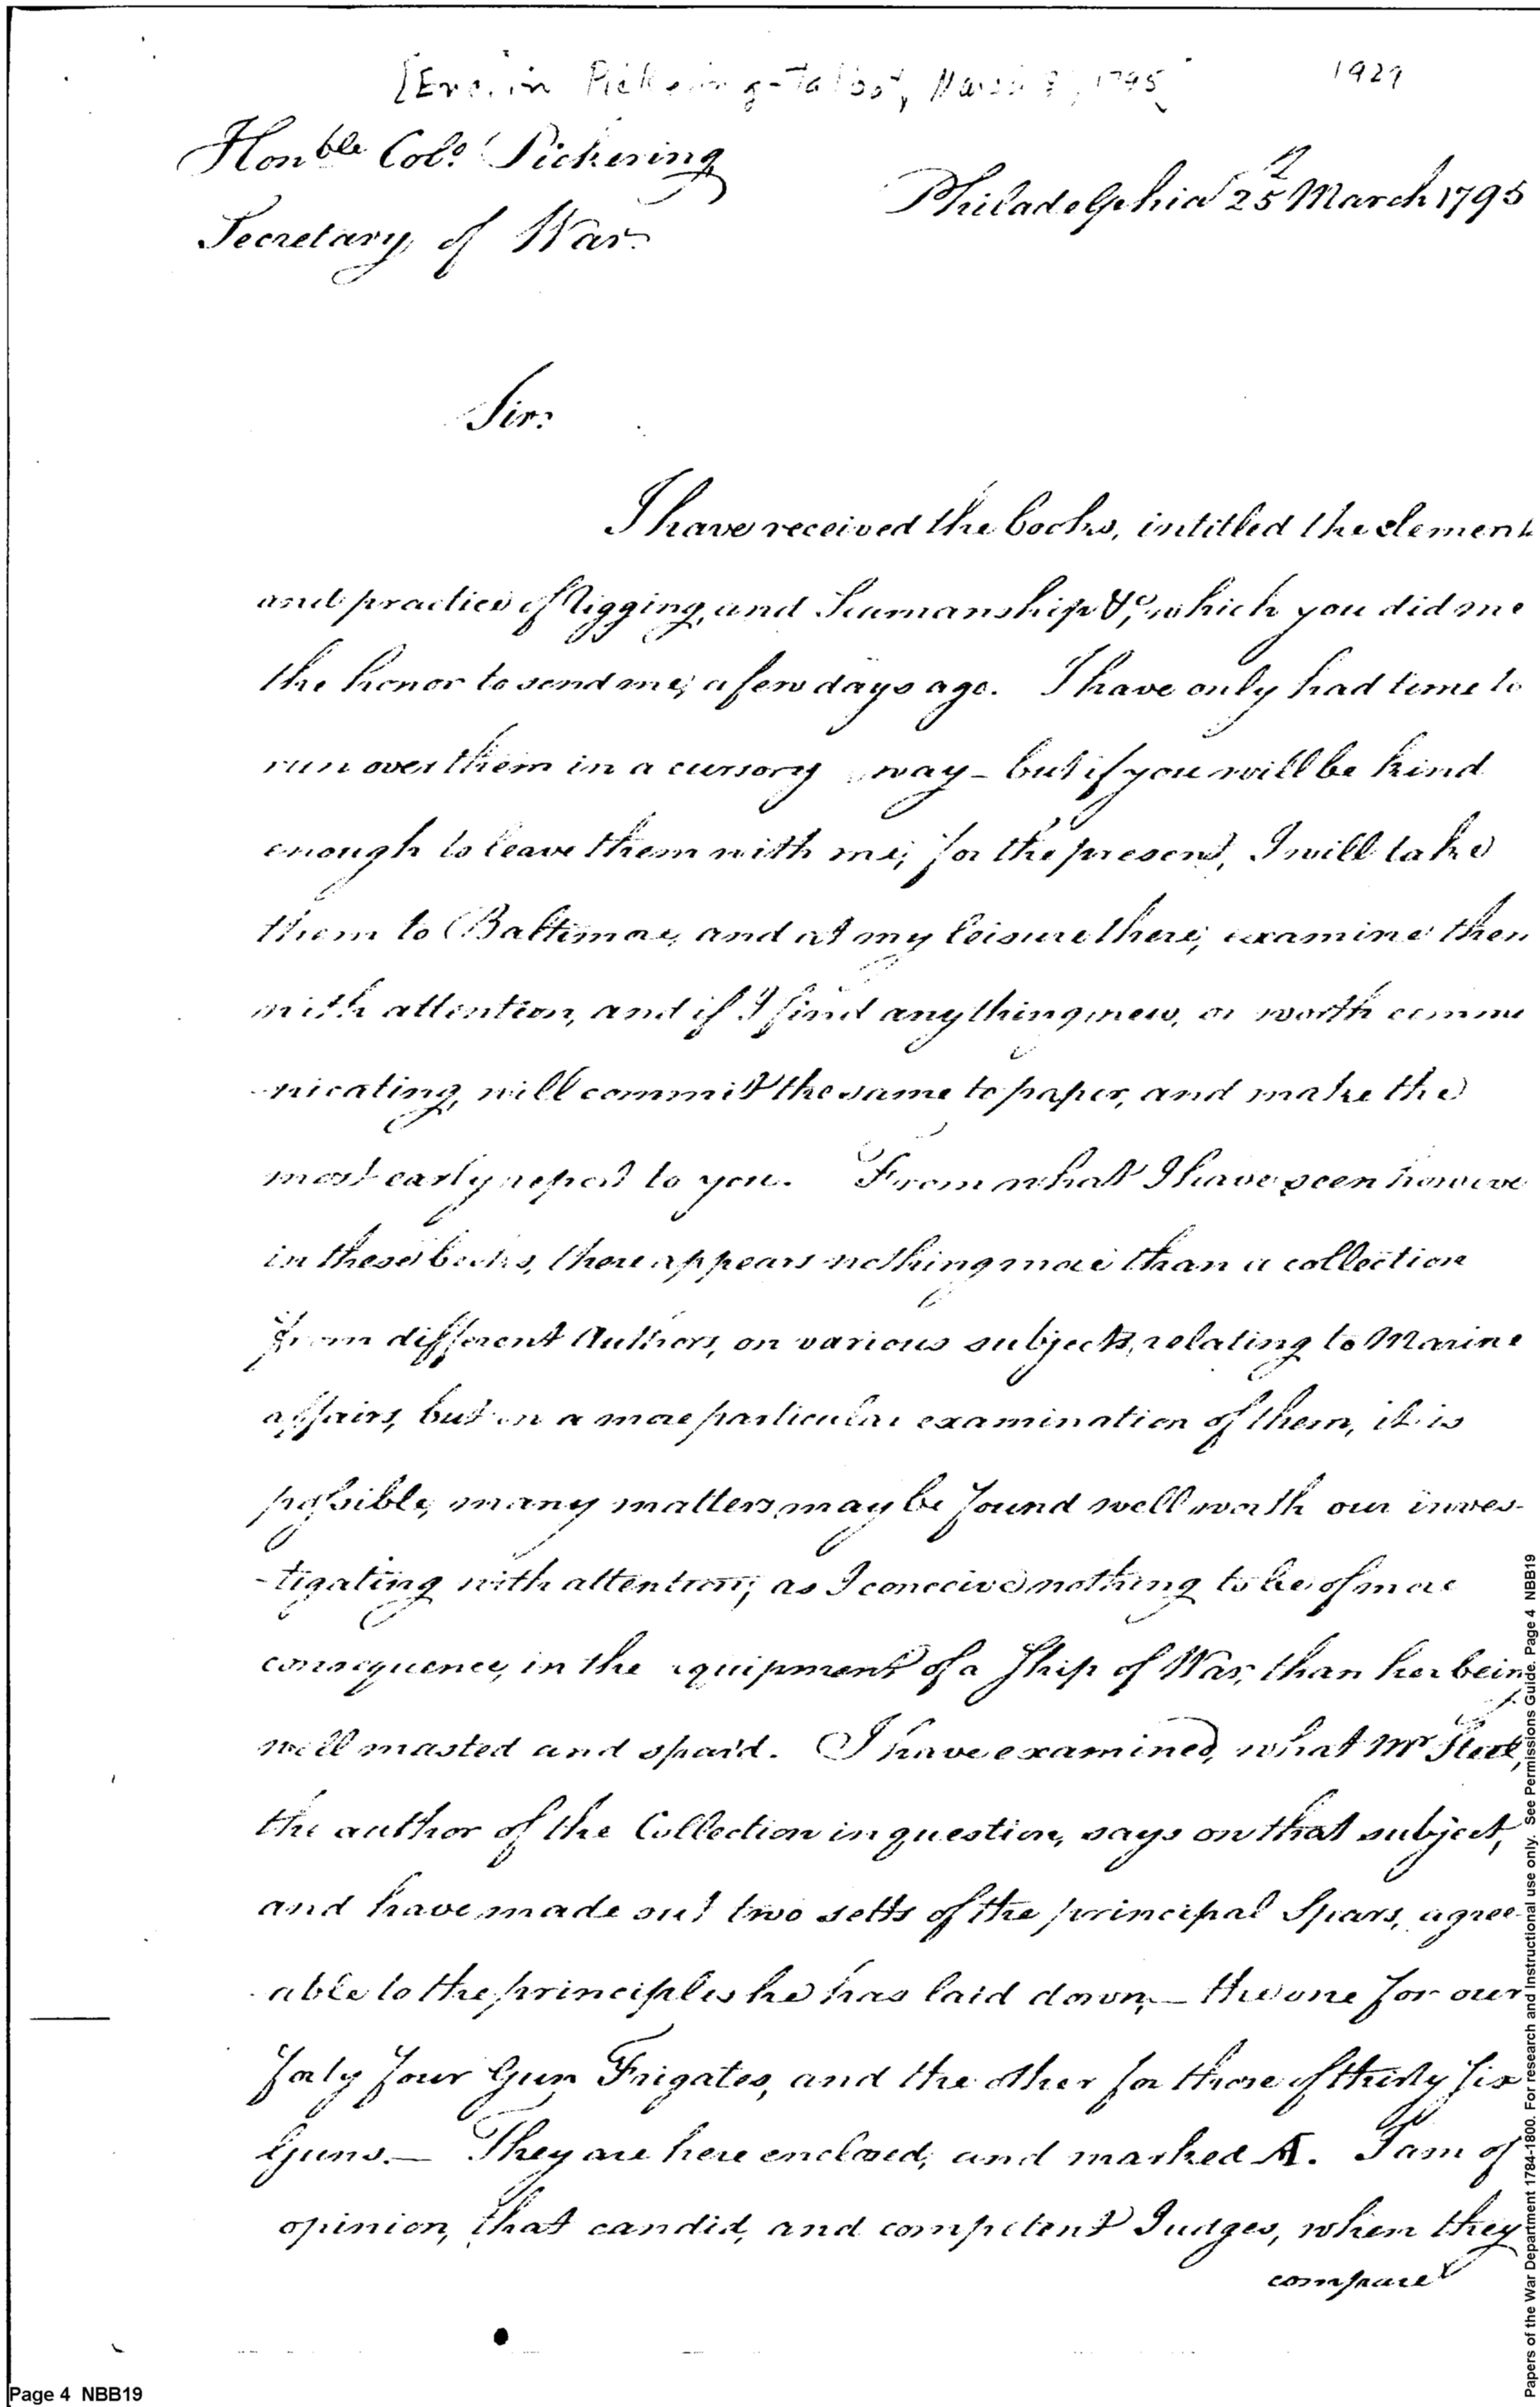 [Enc. in Pickering-Talbot, March 1795]
1929
Honble Colo. Pickering
Secretary of War
Philadelphia 25th March 1795
Sir:
I have received the books, intitled the element
and practice of Rigging, and Seamanship &c, which you did me
the honor to send me, a few days ago. I have only had time to
run over them in a cursory way - but if you will be kind
enough to leave them with me, for the present, I will take
them to Baltimore, and at my leisure there, examine them
with attention, and if I find any thing new, or worth commu
-nicating, will commit the same to paper, and make the
most early report to you. From what I have seen however
in these books, there appears nothing more than a collection
from different Authors, on various subjects, relating to Marine
affairs, but on a more particular examination of them, it is
possible, many matters may be found well worth our inves-
-tigating with attention; as I conceive nothing to be of more
consequence, in the equipment of a Ship of War, than her being
well masted and spar'd. I have examined, what Mr Steel,
the author of the Collection in question, says on that subject,
and have made out two setts of the principal Spars, agree-
able to the principles he has laid down, — the one for our
forty four Gun Frigates, and the other for those of thirty six
Guns. — They are here enclosed, and marked A. I am of
opinion, that candid, and competent Judges, when they
compare
Page 4 NBB19
Papers of the War Department 1784-1800. For research and Instructional use only. See Permissions Guide. Page 4 NBB19